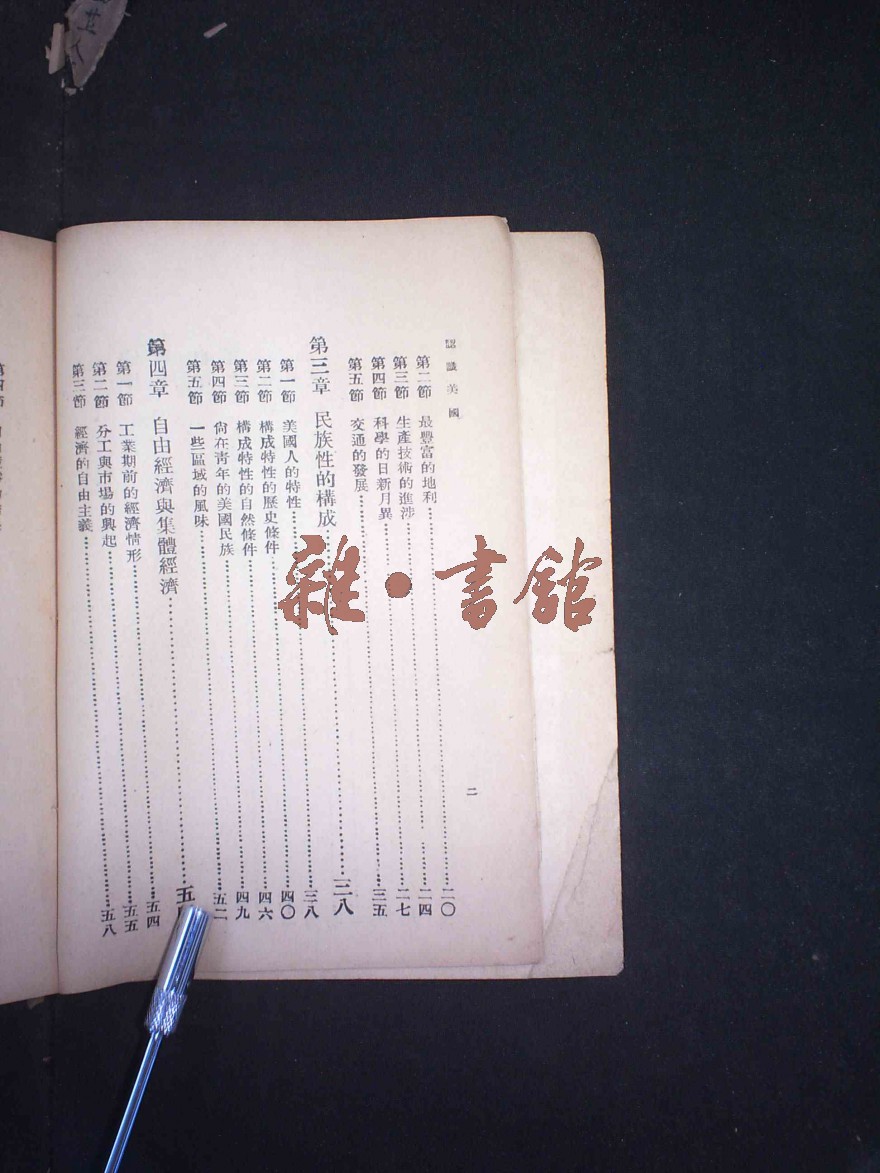 認識美國
二
第二節 最豐富的地利……二〇
第三節 生產技術的進涉……二四
第四節 科學的日新月異……二七
第五節 交通的發展……三五
第三章 民族性的構成……三八
第一節 美國人的特性……三八
第二節 構成特性的歷史條件……四〇
第三節 構成特性的自然條件……四六
第四節 尙在靑年的美國民族……四九
第五節 一些區域的風味……五二
第四章 自由經濟與集體經濟……五
第一節 工業期前的經濟情形……五四
第二節 分工與市場的興起……五五
第三節 經濟的自由主義……五八
雜·書館